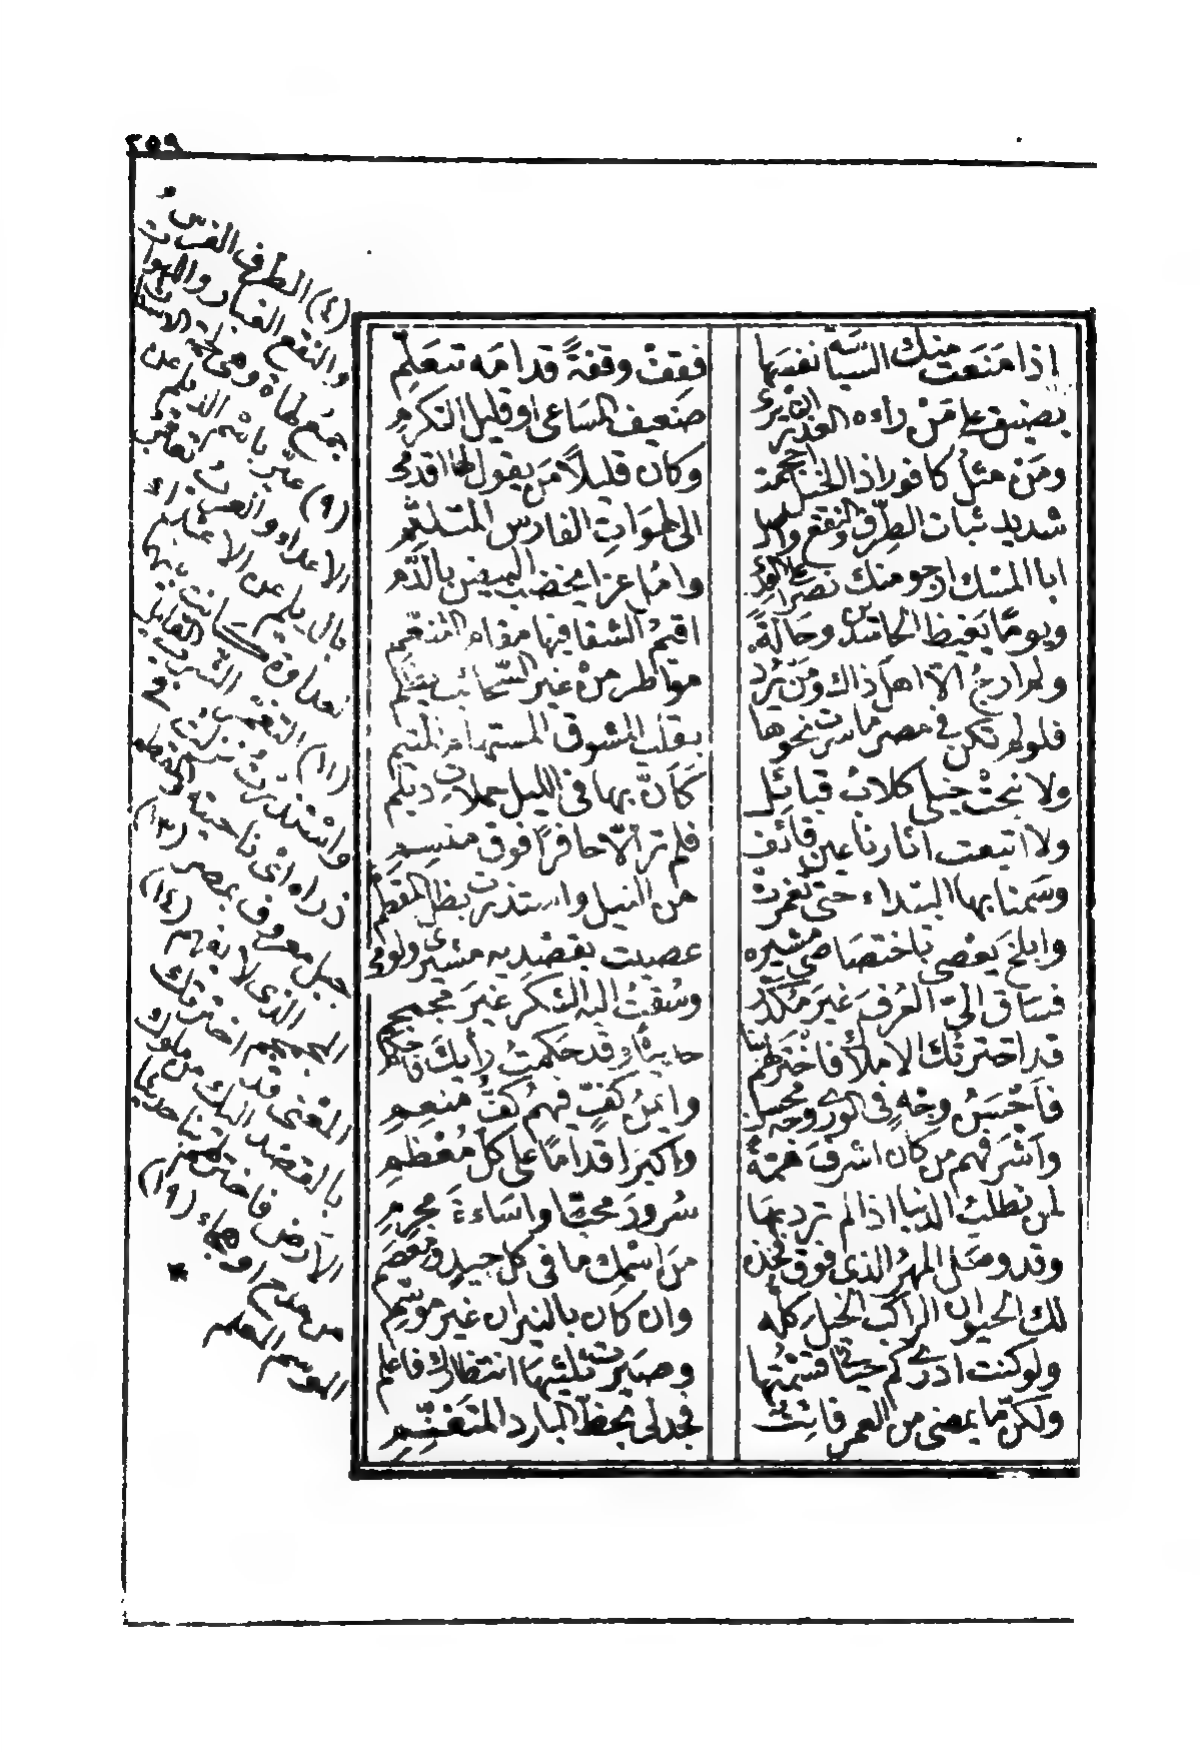 ٢٥٩
اذا مَنَعَت منك السياسة نفسَها فقِفْ وقفةً قدامَه تتعلمِ
يضيق على مَنْ راءه العذر ان يُرى ضعيف المساعى او قليل التكرمِ
ومَنْ مثلُ كافور اذا الخيل احجمت وكان قليلاً مَن يقول لها اقدمى
شديد ثبات الطِرْفِ والنقع واصل الى لهواتِ الفارس المتلثّمِ
ابا المسك ارجو منك نصرًا على العدى وامُل عزا يخضب البيض بالدَّم
ويومًا يَغيظ الحاسدين وحَالةً اقيمُ الشقا فيها مقام التنعّم
ولم ارجُ الّا اهل ذاك ومَن يُرِد مَواطر من غير السَّحائب يَظلم
فلو لم تكن في مصر ما سرت نحوها بقلب المشوق المستهام المتيم
ولا نبحَتْ خيلى كلابُ قبائِل كَأَنَّ بها فى الليل حملات ديلم
ولا اتبعت اثارنا عين قائف فلم ترَ الّا حافرًا فوق منسِمِ
وسَمنا بها البَيداء حتى تغمرتْ من النيل واستذرت بظل المقطم
وابلخ يَعْصى باختصاصى مشيره عصيت بقصديه مشيرى ولوّمى
فسَاق الىّ العُرفَ غيرَ مُكَدَّر وسُقتُ اليه الشكر غيرَ مجمجم
قد اخترتك الاملاكَ فاخترْ لهم بنا حديثًا وقد حَكمتُ رأيكَ فاحْكم
فاَحْسَنُ وجْهٍ فى الورى وجْه محسن وايمَنُ كفٍّ فيهمُ كفُّ منعِمِ
واشرفهم من كان اشرفَ همّةً واكبرَ اقدامًا على كل مُعْظمِ
لمن تطلب الدنيا اذا لم ترد بها سُرورَ محبّ او اسَاءةَ مجرمِ
وقد وصَل المهرُ الذى فوق فخذه مَن اسْمِك ما فى كل جيدٍ ومعصَم
لك الحيوان الراكب الخيلَ كلّه وان كان بالنيران غيرَ موسَّمِ
ولو كنت ادرى كم حيَاتى قسَمْتُها وصيّرت ثلثيها انتظارك فاعلم
ولكنّ ما يمضى من العمر فائتٌ فجُد لى بحظّ البادر المتغنّمِ
(٤) الطرف الفرس
والنقع الغبار واللهوات
جمع لهاة وهى لحمة الاسنان
(٩) عبّر باسْم الديلم عن
الاعداء والعربُ تعبّر
بالديلم عن الاعداء
لعداوة كانت بينها
(١١) التغمر الشرب القليل
واسْتذرت نزلت فى
ذراه اى ناحيته والمقطم
جبل معروف بمصر (١٣)
المجمجم الذى لا يفهم (١٤)
المعْنى قد اخترتك
بالقصد اليك من ملوك
الاَرض فاختر لهم بنا حديثا
من مدح او هجاء (١٩)
الموسم المعلم
*